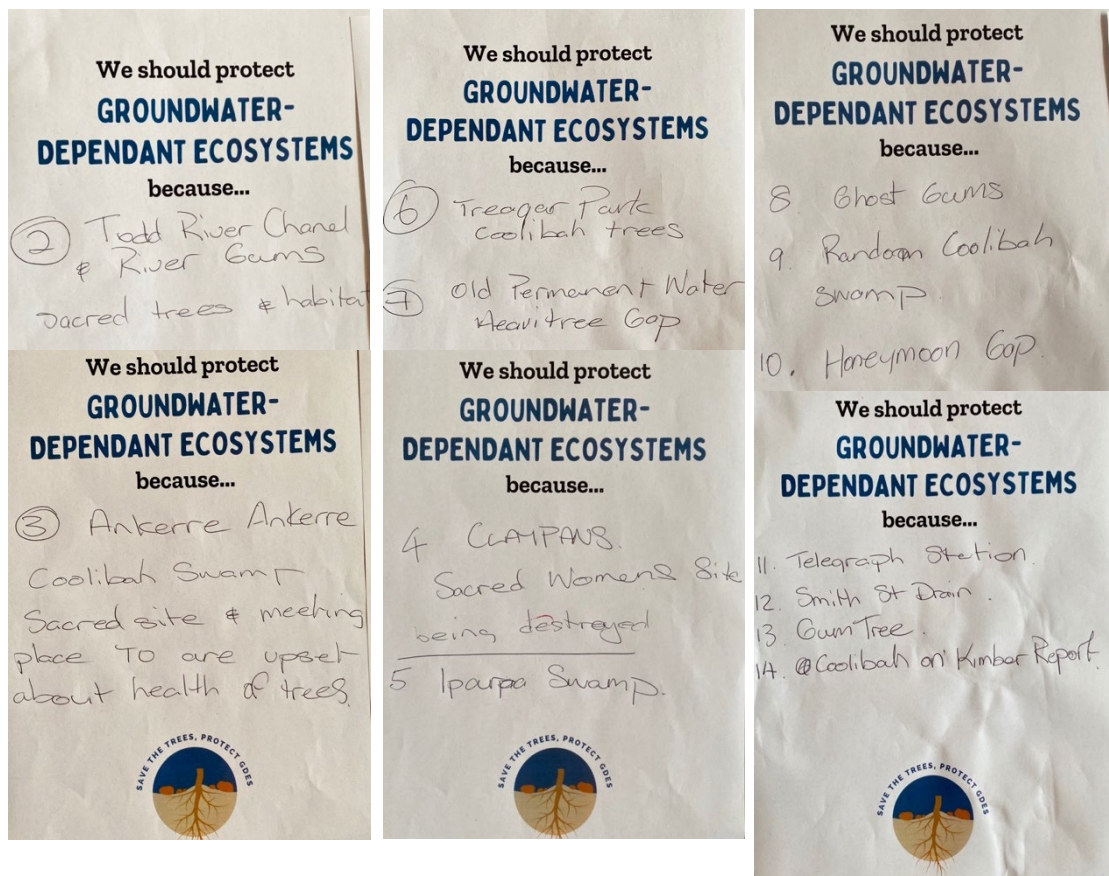 We should protect
GROUNDWATER-
DEPENDANT ECOSYSTEMS
because...
2 Todd River Chanel
& River Gums
Sacred trees & habitat
We should protect
GROUNDWATER-
DEPENDANT ECOSYSTEMS
because...
3 Ankerre Ankerre
Coolibah Swamp
Sacred site & meeting
place TO are upset
about health of trees.
SAVE THE TREES, PROTECT GDES
We should protect
GROUNDWATER-
DEPENDANT ECOSYSTEMS
because...
6 Treager Park
Coolibah trees
7 Old Permanent Water
Heavitree Gap
We should protect
GROUNDWATER-
DEPENDANT ECOSYSTEMS
because...
4 CLAYPANS.
Sacred Womens Site
being destroyed
5 Iparpa Swamp.
SAVE THE TREES, PROTECT GDES
We should protect
GROUNDWATER-
DEPENDANT ECOSYSTEMS
because...
8 Ghost Gums
9. Random Coolibah
swamp.
10. Honeymoon Gap.
We should protect
GROUNDWATER-
DEPENDANT ECOSYSTEMS
because...
11. Telegraph Station.
12. Smith St Drain.
13. Gum Tree.
14. Coolibah on Kimbar Report.
SAVE THE TREES, PROTECT GDES